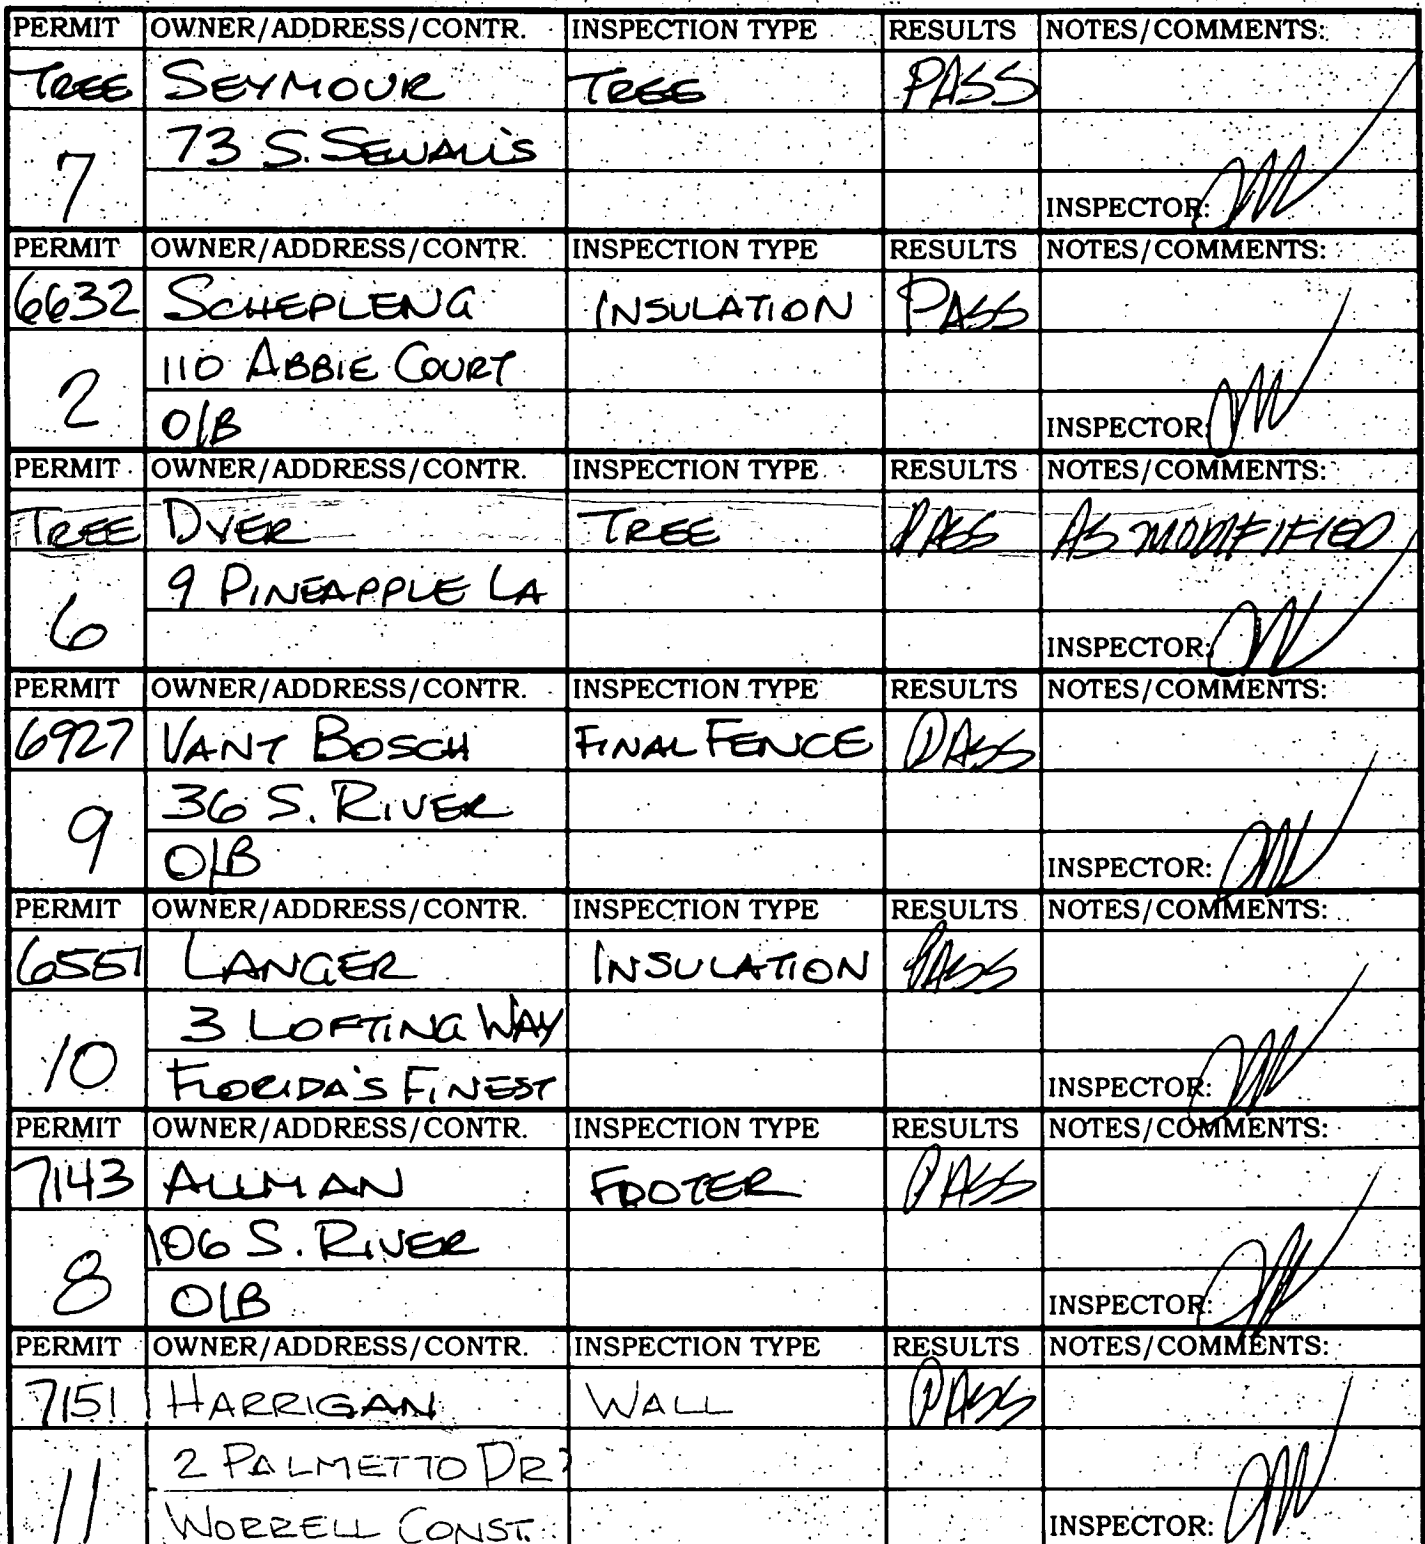 PERMIT OWNER/ADDRESS/CONTR. INSPECTION TYPE RESULTS NOTES/COMMENTS:
TREE SEYMOUR TREE PASS
7 73 S. SEWALL'S
INSPECTOR:
PERMIT OWNER/ADDRESS/CONTR. INSPECTION TYPE RESULTS NOTES/COMMENTS:
6632 SCHEPLENG INSULATION PASS
2 110 ABBIE COURT
O/B INSPECTOR:
PERMIT OWNER/ADDRESS/CONTR. INSPECTION TYPE RESULTS NOTES/COMMENTS:
TREE DYER TREE PASS AS MODIFIFIED
6 9 PINEAPPLE LA
INSPECTOR:
PERMIT OWNER/ADDRESS/CONTR. INSPECTION TYPE RESULTS NOTES/COMMENTS:
6927 VANT BOSCH FINAL FENCE PASS
9 36 S. RIVER
O/B INSPECTOR:
PERMIT OWNER/ADDRESS/CONTR. INSPECTION TYPE RESULTS NOTES/COMMENTS:
6557 LANGER INSULATION PASS
10 3 LOFTING WAY
FLORIDA'S FINEST INSPECTOR:
PERMIT OWNER/ADDRESS/CONTR. INSPECTION TYPE RESULTS NOTES/COMMENTS:
7143 ALLMAN FOOTER PASS
8 106 S. RIVER
O/B INSPECTOR:
PERMIT OWNER/ADDRESS/CONTR. INSPECTION TYPE RESULTS NOTES/COMMENTS:
7151 HARRIGAN WALL PASS
11 2 PALMETTO DR
WORRELL CONST. INSPECTOR: